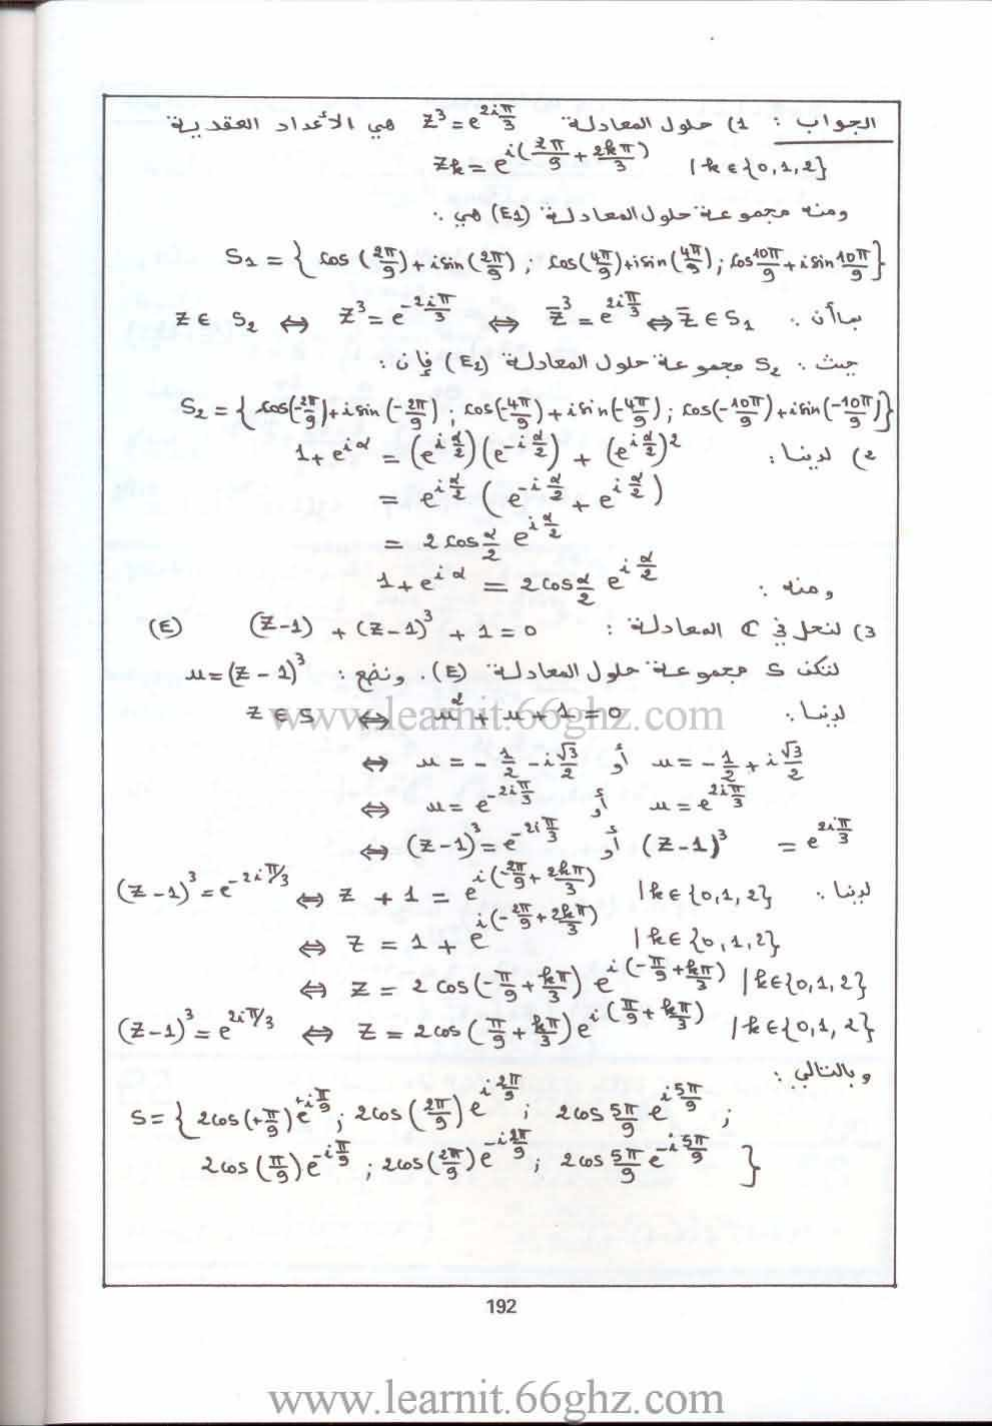 الجواب : 1) حلول المعادلة z³ = e^{2iπ/3} هي الأعداد العقدية
z_k = e^{i(2π/9 + 2kπ/3)} | k ∈ {0,1,2}
ومنه مجموعة حلول المعادلة (E1) هي :
S_1 = { cos(2π/9) + i sin(2π/9) ; cos(4π/9) + i sin(4π/9) ; cos 10π/9 + i sin 10π/9 }
بما أن : z ∈ S_2 ⇔ z³ = e^{-2iπ/3} ⇔ z̄³ = e^{2iπ/3} ⇔ z̄ ∈ S_1
حيث : S_2 مجموعة حلول المعادلة (E2) فإن :
S_2 = { cos(-2π/9) + i sin(-2π/9) ; cos(-4π/9) + i sin(-4π/9) ; cos(-10π/9) + i sin(-10π/9) }
2) لدينا : 1 + e^{iα} = (e^{iα/2})(e^{-iα/2}) + (e^{iα/2})²
= e^{iα/2} (e^{-iα/2} + e^{iα/2})
= 2 cos α/2 e^{iα/2}
ومنه : 1 + e^{iα} = 2 cos α/2 e^{iα/2}
3) لنحل في C المعادلة : (z-1) + (z-1)³ + 1 = 0 (E)
لتكن S مجموعة حلول المعادلة (E). ونضع : u = (z-1)³
لدينا : z ∈ S ⇔ u² + u + 1 = 0
www.learnit.66ghz.com
⇔ u = -1/2 - i√3/2 أو u = -1/2 + i√3/2
⇔ u = e^{-2iπ/3} أو u = e^{2iπ/3}
⇔ (z-1)³ = e^{-2iπ/3} أو (z-1)³ = e^{2iπ/3}
لدينا : (z-1)³ = e^{-2iπ/3} ⇔ z + 1 = e^{i(-2π/9 + 2kπ/3)} | k ∈ {0,1,2}
⇔ z = 1 + e^{i(-2π/9 + 2kπ/3)} | k ∈ {0,1,2}
⇔ z = 2 cos(-π/9 + kπ/3) e^{i(-π/9 + kπ/3)} | k ∈ {0,1,2}
(z-1)³ = e^{2iπ/3} ⇔ z = 2 cos(π/9 + kπ/3) e^{i(π/9 + kπ/3)} | k ∈ {0,1,2}
وبالتالي :
S = { 2cos(+π/9) e^{+iπ/9} ; 2cos(2π/9) e^{i2π/9} ; 2cos 5π/9 e^{i5π/9} ;
2cos(π/9) e^{-iπ/9} ; 2cos(2π/9) e^{-i2π/9} ; 2cos 5π/9 e^{-i5π/9} }
192
www.learnit.66ghz.com